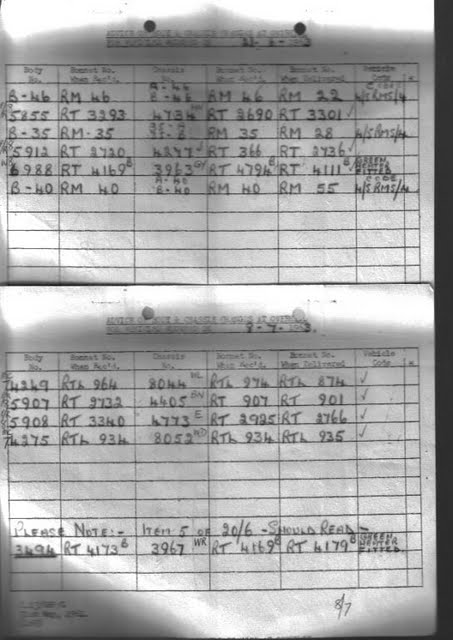 Body Bonnet No. Chassis Bonnet No. Bonnet No. Vehicle
No. When Rec'd. No. When Rec'd. When Delivered Code
B-46 RM 46 B-46 RM 46 RM 22 4/5 RMS/4
5855 RT 3293 4734 RT 2690 RT 3301 ✓
B-35 RM-35 RM 35 RM 28 4/5 RMS/4
5912 RT 2720 4277 RT 366 RT 2736 ✓
6988 RT 4169 B 3963 GY RT 4794 B RT 4111 B
B-40 RM 40 B-40 RM 40 RM 55 4/5 RMS/4
Body Bonnet No. Chassis Bonnet No. Bonnet No. Vehicle
No. When Rec'd. No. When Rec'd. When Delivered Code
4249 RTL 964 8044 WL RTL 974 RTL 874 ✓
5907 RT 2732 4405 BN RT 907 RT 901 ✓
5908 RT 3340 4773 E RT 2925 RT 2766 ✓
4275 RTL 934 8052 WD RTL 934 RTL 935 ✓
PLEASE NOTE:- ITEM 5 OF 20/6 - SHOULD READ -
3494 RT 4173 B 3967 WR RT 4169 B RT 4179 B GREEN HEATER FITTED.
8/7